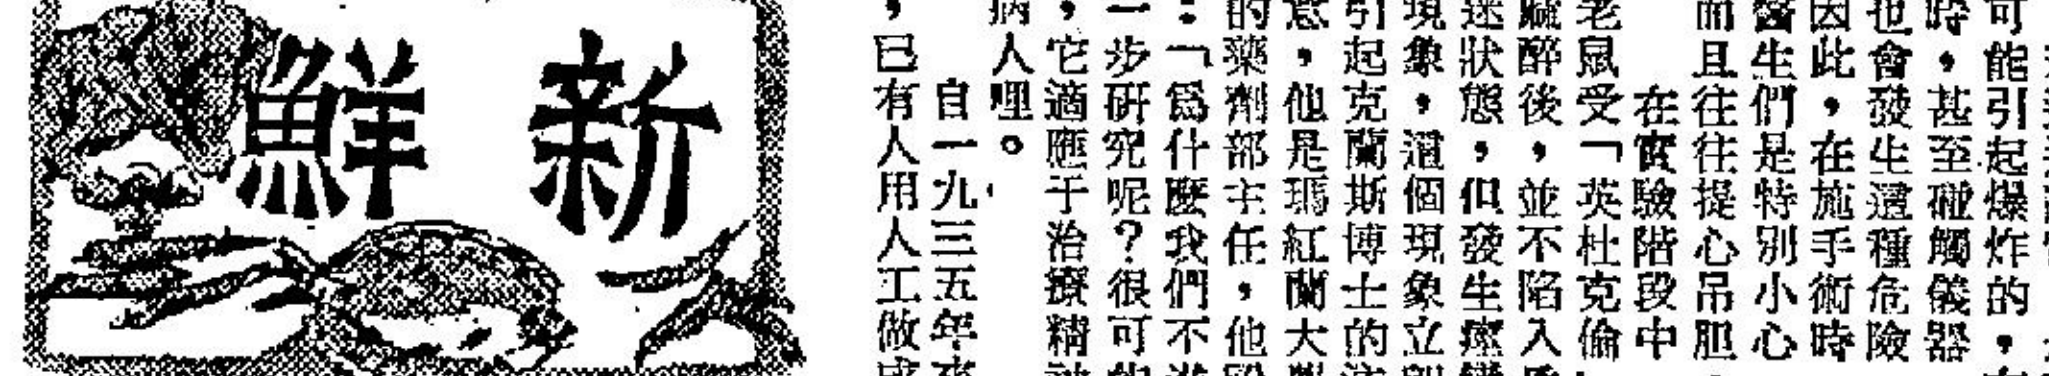 可能引起爆炸的，
時，甚至碰觸儀器
也會發生這種危險
因此，在施手術時
醫生們是特別小心
而且往往提心吊胆
在實驗階段中
老鼠受「英杜克倫
醉後，並不陷入
迷狀態，但發生痙
現象，這個現象立
引起克蘭斯博士的
意，他是瑪紅蘭大
的藥劑部主任，他
：「爲什麼我們不
一步研究呢？很可
，它適應于治療精
病人哩。
自一九三五年來
，已有人用人工做
新鮮